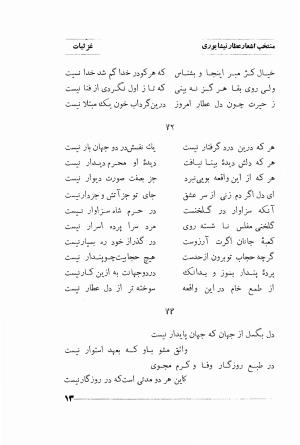 منتخب اشعار عطار نیشابوری غزلیات
خیال کژ مبر اینجا و بشناس که هر کو در خدا گم شد خدا نیست
ولی روی بقا هرگز نبینی که تا ز اول نگردی از فنا نیست
ز حیرت چون دل عطار امروز درین گرداب خون یک مبتلا نیست
۷۲
هر که درین درد گرفتار نیست یک نفسش در دو جهان بار نیست
هر که دلش دیدهٔ بینا نیافت دیدهٔ او محرم دیدار نیست
هر که از این واقعه بویی نبرد جز بصفت صورت دیوار نیست
ای دل اگر دم زنی از سر عشق جای تو جز آتش و جز دار نیست
آنکه سزاوار در گلخنست در حرم شاه سزاوار نیست
گلخنی مفلس نا شسته روی مرد سرا پرده اسرار نیست
کعبهٔ جانان اگرت آرزوست در گذر از خود ره بسیار نیست
گرچه حجاب تو برون از حدست هیچ حجابیت چو پندار نیست
پردهٔ پندار بسوز و بدانک در دو جهانت به ازین کار نیست
از طمع خام در این واقعه سوخته تر از دل عطار نیست
۷۳
دل بگسل از جهان که جهان پایدار نیست
واثق مشو باو که بعهد استوار نیست
در طبع روزگار وفا و کرم مجوی
کاین هر دو مدتی است که در روزگار نیست
۱۳